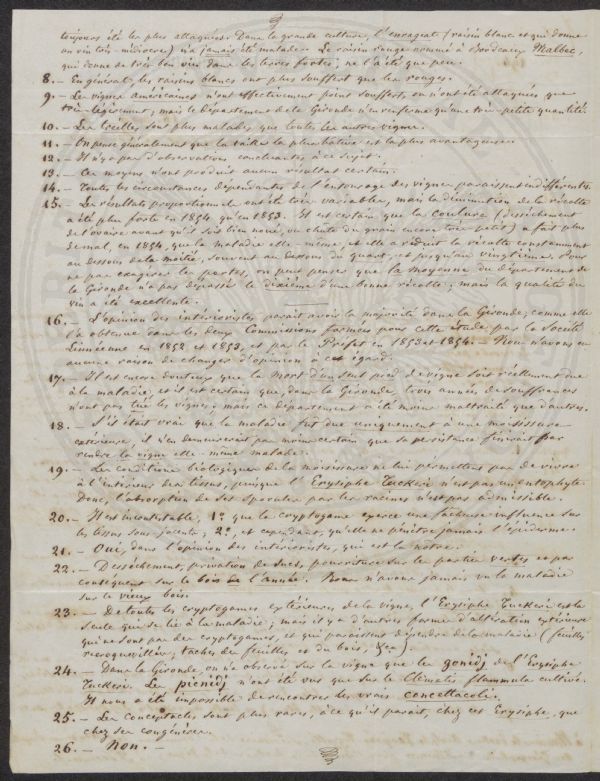 3
toujours été les plus attaquées. Dans la grande culture, l'enrageat (raisin blanc et qui donne
un vin très-médiocre) n'a jamais été malade. Le raisin rouge nommé à Bordeaux Malbec,
qui donne de très bon vin dans les terres fortes, ne l'a été que peu.
8. — En général, les raisins blancs ont plus souffert que les rouges.
9. — Les vignes américaines n'ont effectivement point souffert, ou n'ont été attaquées que
très-légèrement; mais le département de la Gironde n'en renferme qu'une très-petite quantité.
10. — Les treilles sont plus malades que toutes les autres vignes.
11. — On pense généralement que la taille la plus hative est la plus avantageuse.
12. — Il n'y a pas d'observations concluantes à ce sujet.
13. — Ces moyens n'ont produit aucun résultat certain.
14. — Toutes les circonstances dépendantes de l'entourage des vignes paraissent indifférentes.
15. — Les résultats proportionnels ont été très variables, mais la diminution de la récolte
a été plus forte en 1854 qu'en 1853. Il est certain que la coulure (desséchement
de l'ovaire avant qu'il soit bien noué, ou chute du grain encore très-petit) a fait plus
de mal, en 1854, que la maladie elle-même, et elle a réduit la récolte constamment
au dessous de la moitié, souvent au dessous du quart, et jusqu'au vingtième. Pour
ne pas exagérer les pertes, on peut penser que la moyenne du département de
la Gironde n'a pas dépassé le dixième d'une bonne récolte; mais la qualité du
vin a été excellente.
16. — L'opinion des intérioristes paraît avoir la majorité dans la Gironde, comme elle
l'a obtenue dans les deux Commissions formées pour cette étude par la Société
Linnéenne en 1852 et 1853, et par le Préfet en 1853 et 1854. — Nous n'avons eu
aucune raison de changer d'opinion à cet égard.
17. — Il est encore douteux que la mort d'un seul pied de vigne soit réellement due
à la maladie, et il est certain que, dans la Gironde, trois années de souffrances
n'ont pas tué les vignes; mais ce département a été moins maltraité que d'autres.
18. — S'il était vrai que la maladie fut due uniquement à une moisissure
extérieure, il n'en demeurerait pas moins certain que sa persistance finirait par
rendre la vigne elle-même malade.
19. — Les conditions biologiques de la moisissure ne lui permettent pas de vivre
à l'intérieur des tissus, puisque l'Erysiphe Tuckeri n'est pas un entophyte.
Donc, l'absorption de ses sporules par les racines n'est pas admissible.
20. — Il est incontestable, 1° que le cryptogame exerce une fâcheuse influence sur
les tissus sous-jacents; 2°, et cependant, qu'elle ne pénètre jamais l'épiderme.
21. — Oui, dans l'opinion des intérioristes, qui est la nôtre.
22. — Desséchement, privation de sucs, pourriture sur les parties vertes et par
conséquent sur le bois de l'année. Nous n'avons jamais vu la maladie
sur le vieux bois.
23. — De toutes les cryptogames extérieures de la vigne, l'Erysiphe Tuckeri est la
seule qui se lie à la maladie; mais il y a d'autres formes d'altération extérieure
qui ne sont pas des cryptogames, et qui paraissent dépendre de la maladie (feuilles
recroquevillées, taches des feuilles et du bois, &ca).
24. — Dans la Gironde, on n'a observé sur la vigne que les gonidj de l'Erysiphe
Tuckeri. Les picnidj n'ont été vus que sur le Clematis flammula cultivé.
Il nous a été impossible de rencontrer les vrais concettacoli.
25. — Les conceptacles sont plus rares, à ce qu'il parait, chez cet Erysiphe, que
chez ses congénères.
26. — Non. —